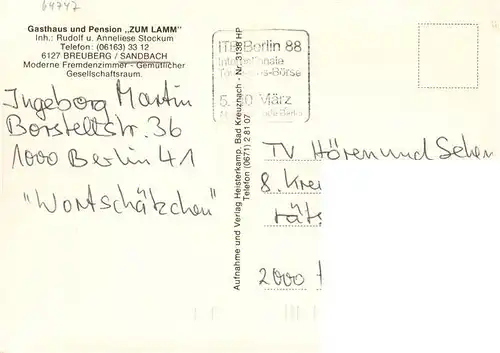 64747
Gasthaus und Pension „ZUM LAMM"
Inh.: Rudolf u. Anneliese Stockum
Telefon: (06163) 33 12
6127 BREUBERG / SANDBACH
Moderne Fremdenzimmer - Gemütlicher
Gesellschaftsraum.
Ingeborg Martin
Borstellstr. 36
1000 Berlin 41
"Wortschätzchen"
Aufnahme und Verlag Heisterkamp, Bad Kreuznach - Nr. 3138 HP
Telefon (0671) 2 81 07
ITB Berlin 88
Internationale
Börse
März
TV Hören und Sehen
8. Kre
räts
2000